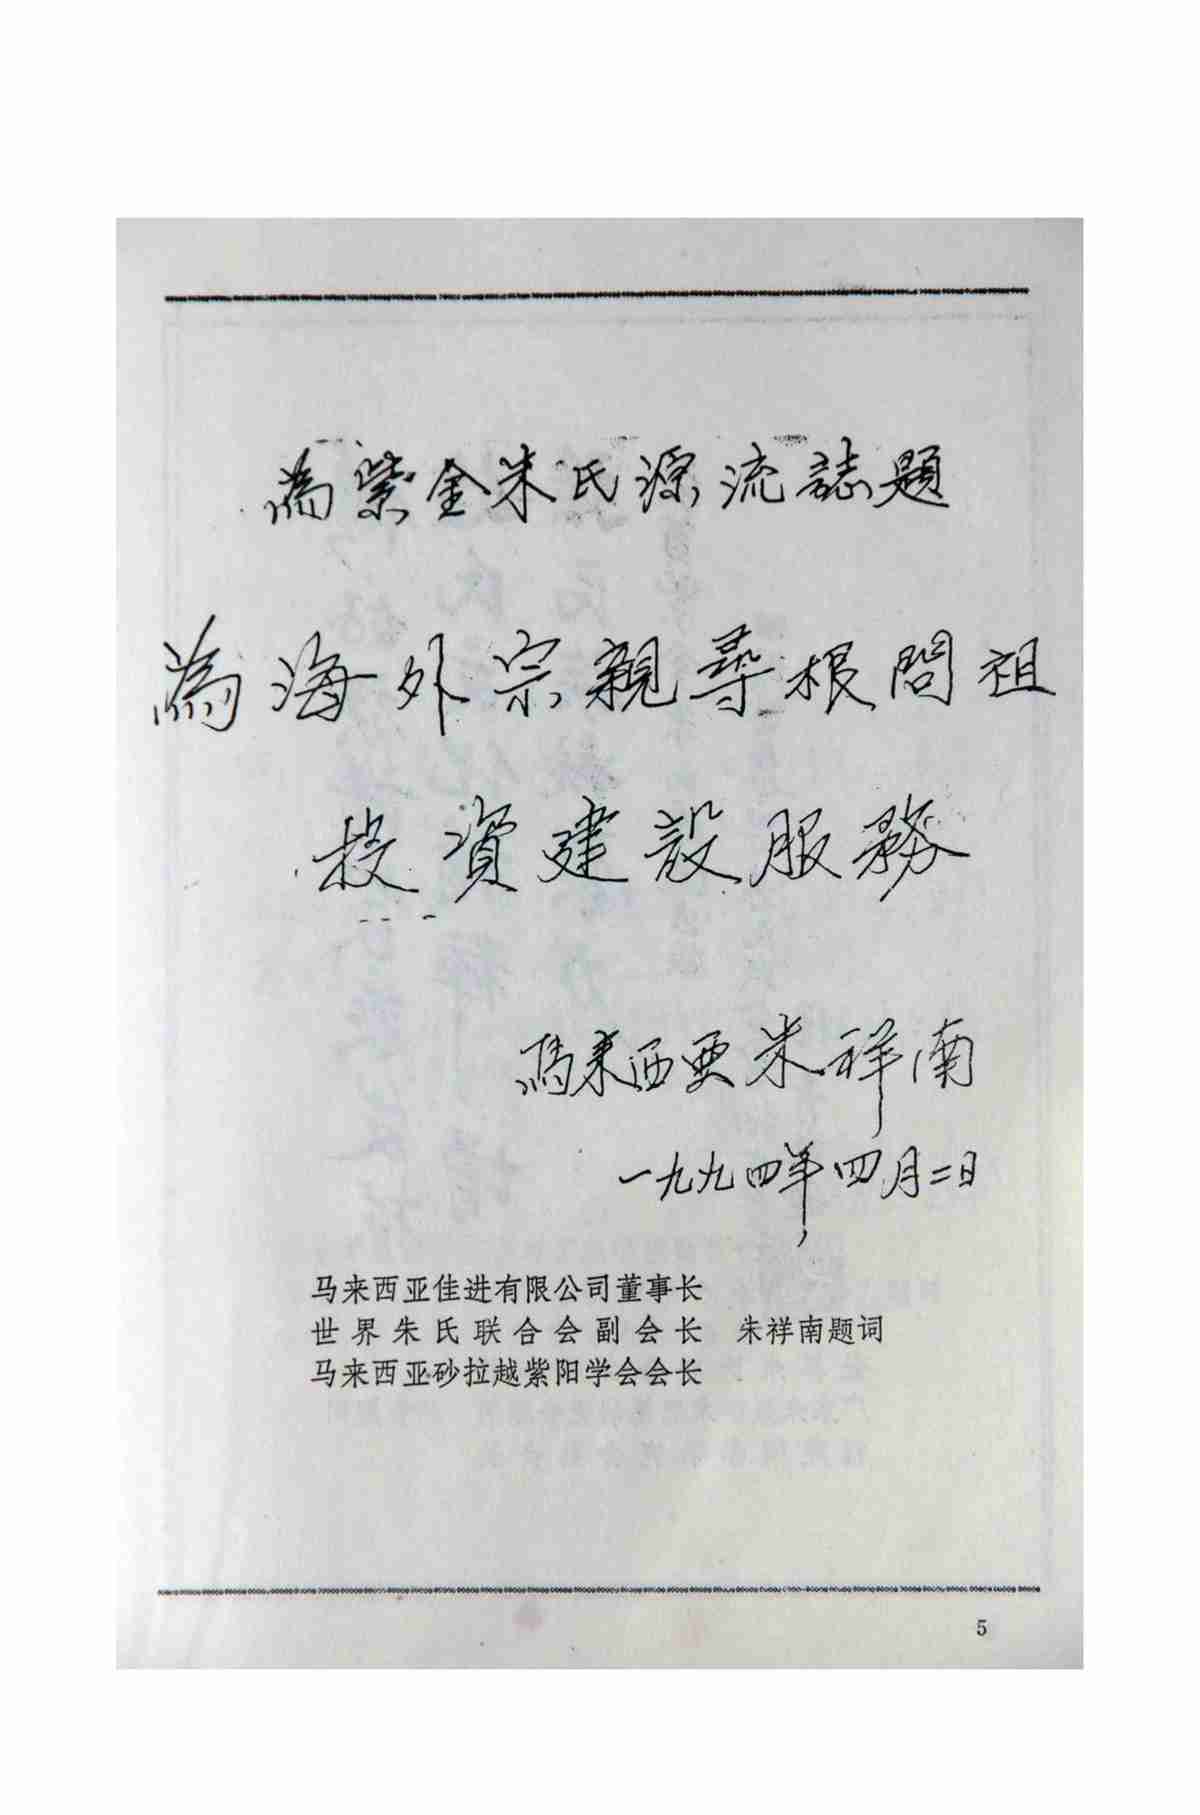 為紫金朱氏源流誌題
為海外宗親尋根問祖
投資建設服務
馬来西亞朱祥南
一九九四年四月二日
马来西亚佳进有限公司董事长
世界朱氏联合会副会长 朱祥南题词
马来西亚砂拉越紫阳学会会长
5